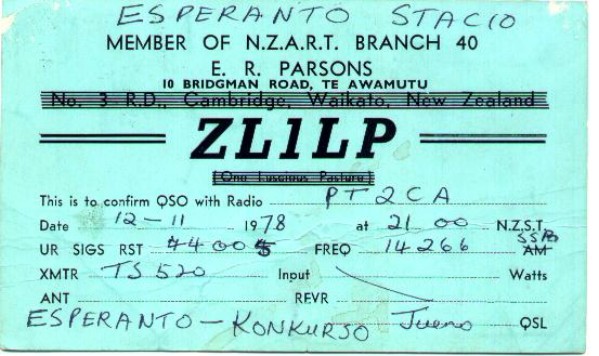 ESPERANTO STACIO
MEMBER OF N.Z.A.R.T. BRANCH 40
E. R. PARSONS
10 BRIDGMAN ROAD, TE AWAMUTU
No. 3 R.D., Cambridge, Waikato, New Zealand
ZL1LP
(One Luscious Pasture)
This is to confirm QSO with Radio PT2CA
Date 12-11 1978 at 21 00 N.Z.S.T.
UR SIGS RST FREQ 14266 SSB AM
XMTR TS 520 Input Watts
ANT REVR
ESPERANTO - KONKURSO QSL